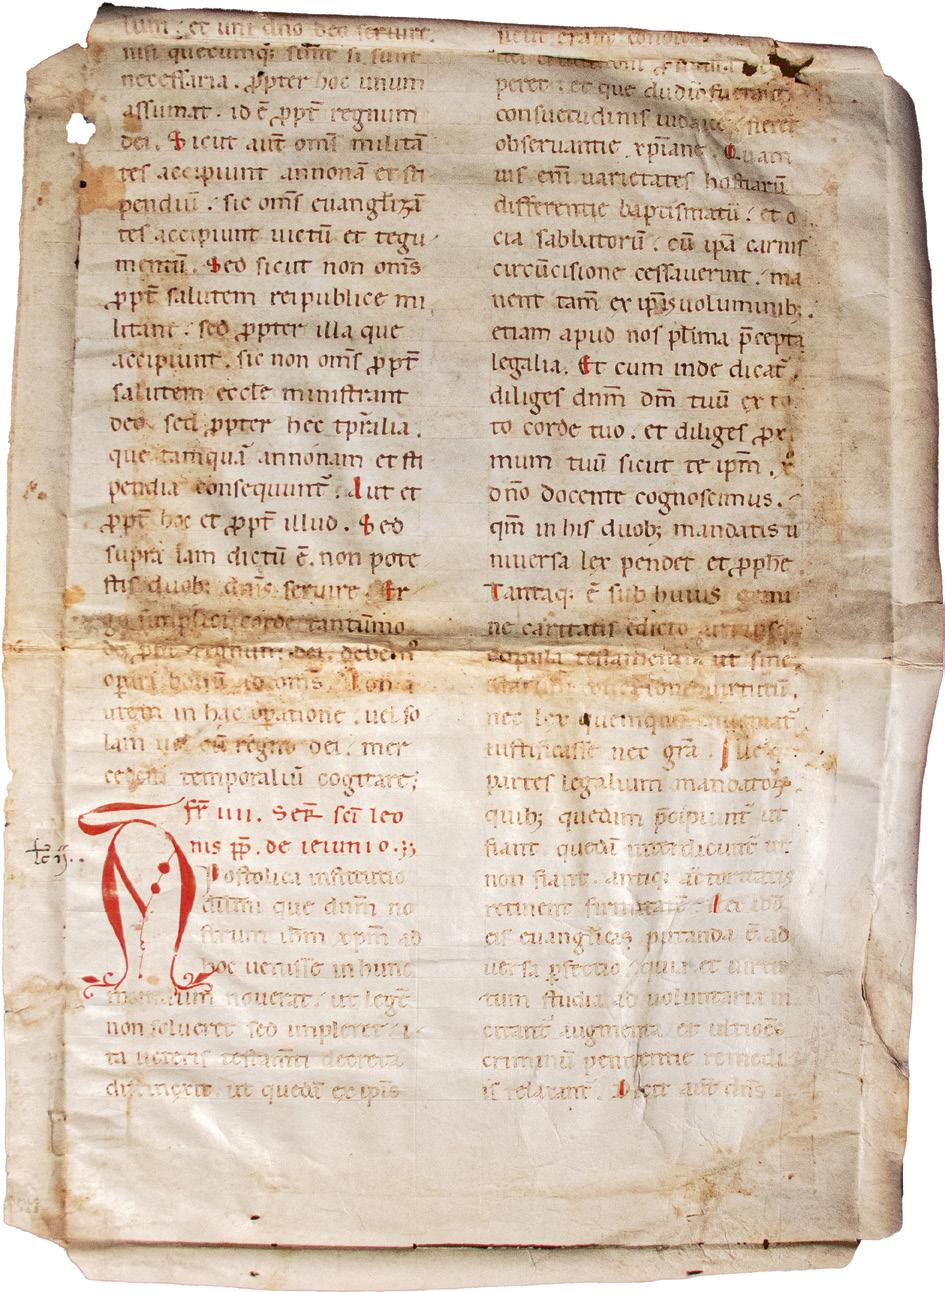 lum; et uni dño deo seruire.
nisi quecumq; sunt si sunt
necessaria. ꝓpter hoc unum
assumat. id ē ꝓpt̄ regnum
dei. Sicut aut̄ om̄s militā
tes accipiunt annonā et sti
pendiū. sic om̄s euangl̄izā
tes accipiunt uictū et tegu
mentū. Sed sicut non om̄s
ꝓpt̄ salutem rei publice mi
litant. sed ꝓpter illa que
accipiunt. sic non om̄s ꝓpt̄
salutem eccl̄e ministrant
deo. sed ꝓpter hec tp̄ralia.
que tamquā annonam et sti
pendia consequunt̄. Aut et
ꝓpt̄ hoc et ꝓpt̄ illud. Sed
supra iam dictū ē. non pote
stis duob; dn̄is seruire. Er
go simplici corde tantūmo
do ꝓpt̄ regnum dei. debem᷒
operari bonū ad om̄s. Non a
utem in hac oꝑatione. uel so
lam uel cū regno dei. mer
cedem temporaliū cogitare;
Fr̄ iiii. Ser̄ sc̄i leo
nis pp̄. de ieiunio.
Apostolica institutio
que dn̄m no
strum ih̄m xp̄m ad
hoc uenisse in hunc
mundum nouerat. ut legē
non solueret sed impleret. i
ta ueteris testam̄ti decreta
distinxit. ut quedā ex ip̄is
peret. et que dudū fuerant
consuetudinis iudaice. fieret
obseruantie xp̄iane. Quam
uis em̄ uarietates hostiarū
differentie baptismatū. et o
cia sabbatorū. cū ipā carnis
circūcisione cessauerint. ma
nent tam̄ ex ip̄is uoluminib;
etiam apud nos pl̄ima p̄cepta
legalia. Et cum inde dicat̄.
diliges dn̄m dm̄ tuū ex to
to corde tuo. et diliges ꝓxi
mum tuū sicut te ip̄m. x
dn̄o docente cognoscimus.
qm̄ in his duob; mandatis u
niuersa lex pendet et ꝓph̄e.
Tantaq; ē sub huius gemi
ne caritatis edicto utriusq;
copula testamenti. ut sine
conexione uirtutū.
nec lex quemquā inueniat̄
iustificasse nec gr̄a.
partes legalium mandatoꝝ.
quib; quedam p̄cipiunt̄ ut
fiant. quedā interdicunt̄ ut
non fiant. antiq; auctoritatis
retinent firmitatē. Nec ibi
eis euangelicas putanda ē ad
uersa ꝑfectio. quia et uirtu
tum studia ad uoluntaria in
citant̄ augmenta. et ultiones
criminū penitentie remedi
is relaxant̄. Dicit aut̄ dn̄s.